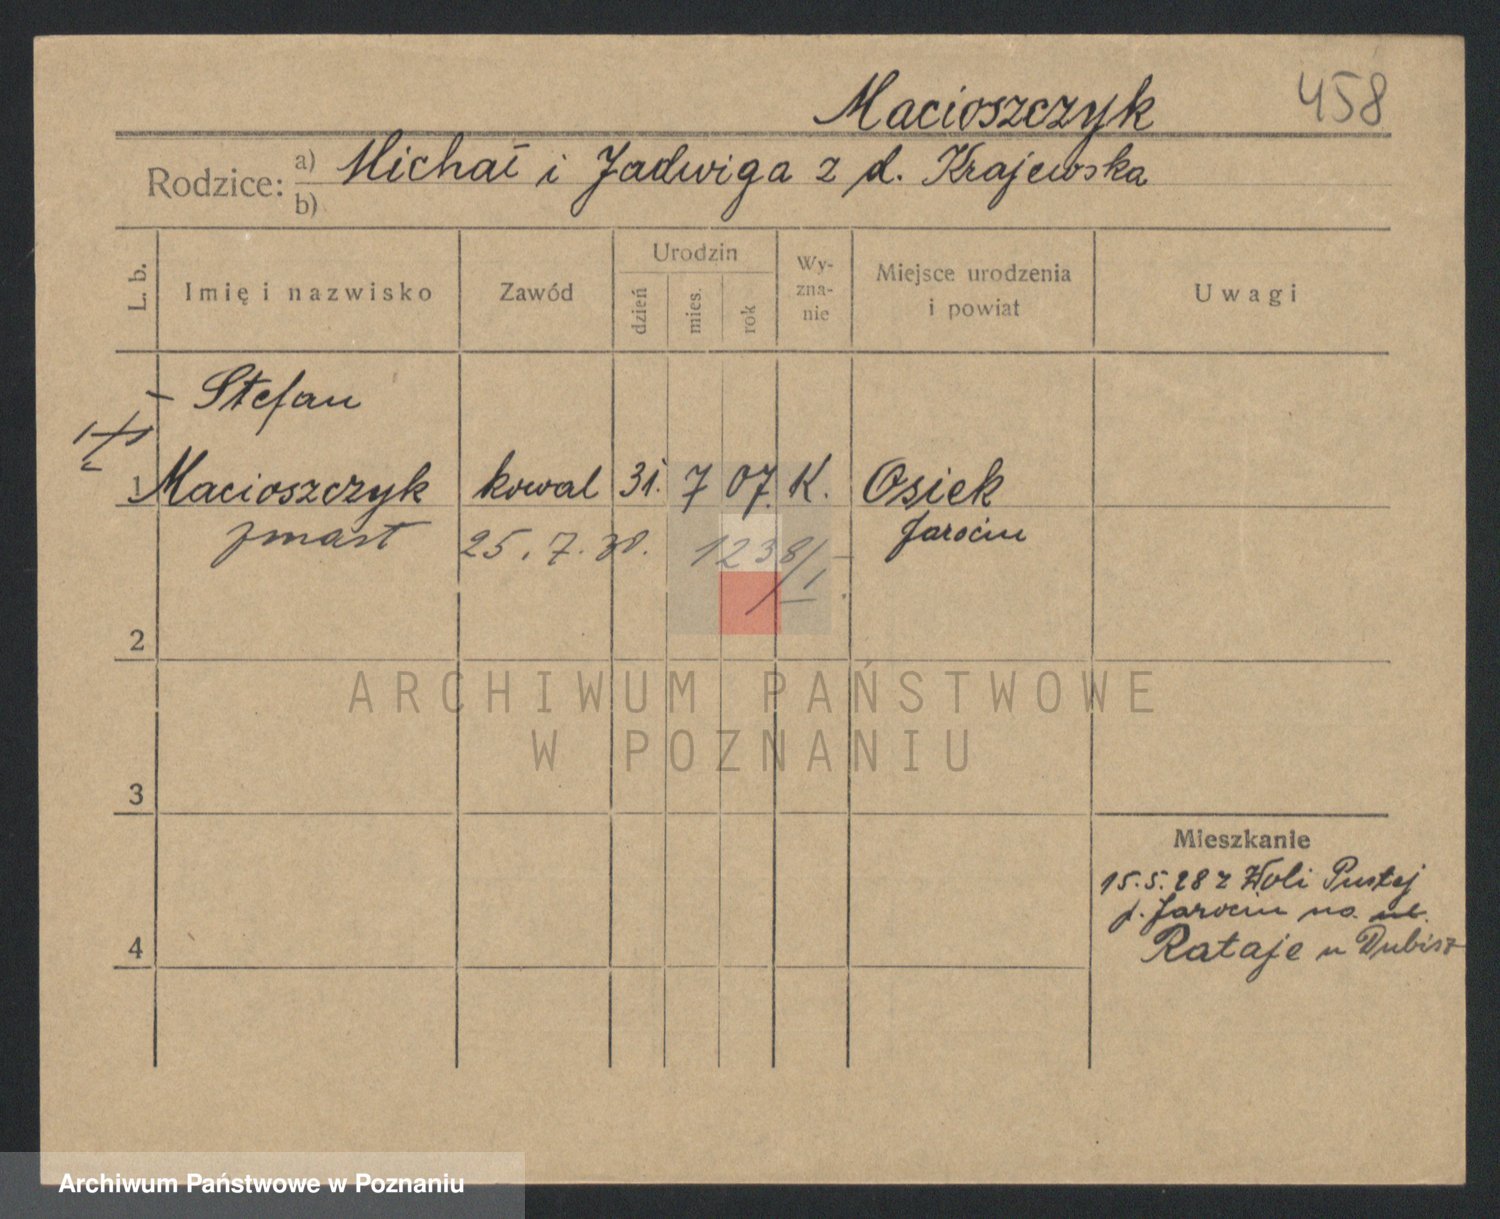 Macioszczyk 458
Rodzice: a) Michał i Jadwiga z d. Krajewska
b)
L. b. Imię i nazwisko Zawód Urodzin dzień mies. rok Wy-zna-nie Miejsce urodzenia i powiat Uwagi
Stefan
1 Macioszczyk kowal 31. 7 07. K. Osiek
zmarł 25. 7. 30. 1238/I Jarocin
2
ARCHIWUM PAŃSTWOWE
W POZNANIU
3
Mieszkanie
15.5.28 z Woli Pustej
p. Jarocin na
4
Rataje u Dubisz
Archiwum Państwowe w Poznaniu